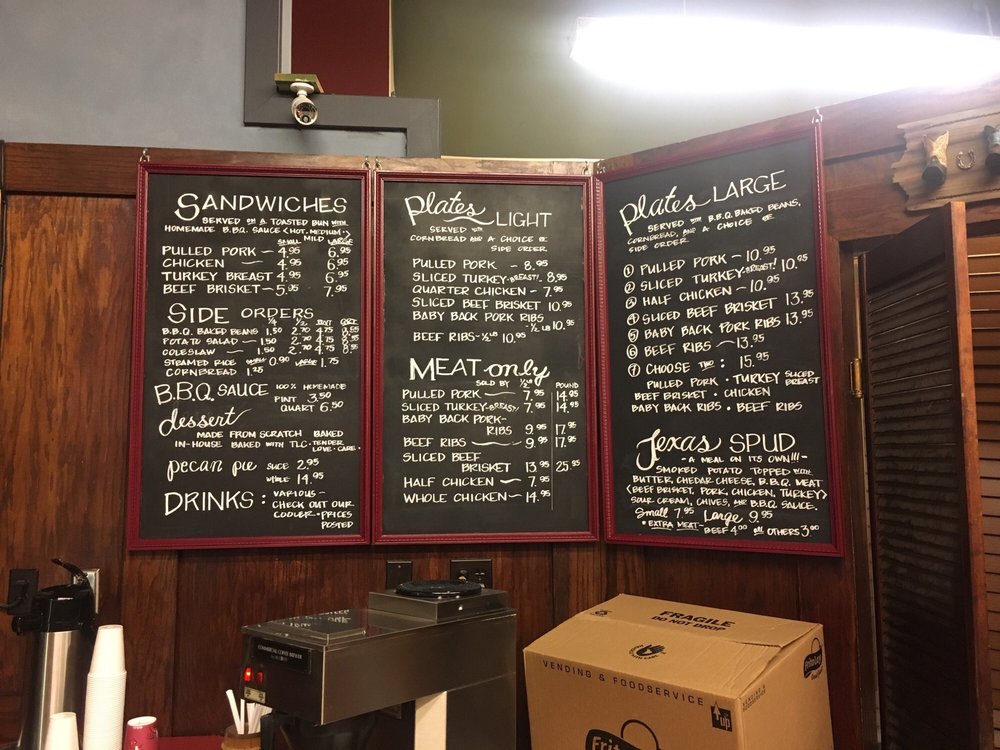 SANDWICHES
SERVED ON A TOASTED BUN WITH
HOMEMADE B.B.Q. SAUCE <HOT, MEDIUM, MILD>
SMALL LARGE
PULLED PORK - 4.95 6.95
CHICKEN - 4.95 6.95
TURKEY BREAST 4.95 6.95
BEEF BRISKET - 5.95 7.95
SIDE ORDERS
1/4 1/2 QRT
B.B.Q. BAKED BEANS 1.50 2.70 4.75 8.55
POTATO SALAD - 1.50 2.70 4.75 8.55
COLESLAW - 1.50 2.70 4.75 8.55
STEAMED RICE SMALL 0.90 LARGE 1.75
CORNBREAD 1.25
B.B.Q. SAUCE 100% HOMEMADE
PINT 3.50
QUART 6.50
dessert
MADE FROM SCRATCH BAKED
IN-HOUSE BAKED WITH TLC. TENDER
LOVE. CARE.
pecan pie SLICE 2.95
WHOLE 14.95
DRINKS: VARIOUS -
CHECK OUT OUR
COOLER. PRICES
POSTED
Plates LIGHT
SERVED WITH
CORNBREAD AND A CHOICE OF
SIDE ORDER
PULLED PORK - 8.95
SLICED TURKEY-BREAST! 8.95
QUARTER CHICKEN - 7.95
SLICED BEEF BRISKET 10.95
BABY BACK PORK RIBS
-1/2 LB 10.95
BEEF RIBS-1/2 LB 10.95
MEAT only
SOLD BY 1/2 LB POUND
PULLED PORK 7.95 14.95
SLICED TURKEY-BREAST! 7.95 14.95
BABY BACK PORK-
RIBS 9.95 17.95
BEEF RIBS 9.95 17.95
SLICED BEEF
BRISKET 13.95 25.95
HALF CHICKEN - 7.95
WHOLE CHICKEN - 14.95
Plates LARGE
SERVED WITH B.B.Q. BAKED BEANS,
CORNBREAD, AND A CHOICE OF
SIDE ORDER
① PULLED PORK - 10.95
② SLICED TURKEY-BREAST! 10.95
③ HALF CHICKEN - 10.95
④ SLICED BEEF BRISKET 13.95
⑤ BABY BACK PORK RIBS 13.95
⑥ BEEF RIBS - 13.95
⑦ CHOOSE TWO: 15.95
PULLED PORK • TURKEY SLICED BREAST
BEEF BRISKET • CHICKEN
BABY BACK RIBS • BEEF RIBS
Texas SPUD
- A MEAL ON ITS OWN!!! -
SMOKED POTATO TOPPED WITH
BUTTER, CHEDAR CHEESE, B.B.Q. MEAT
<BEEF BRISKET, PORK, CHICKEN, TURKEY>
SOUR CREAM, CHIVES, AND B.B.Q. SAUCE.
Small 7.95 Large 9.95
• EXTRA MEAT - BEEF 4.00 all OTHERS 3.00
COMMERCIAL COFFEE BREWER
FRAGILE
DO NOT DROP
VENDING & FOODSERVICE
up